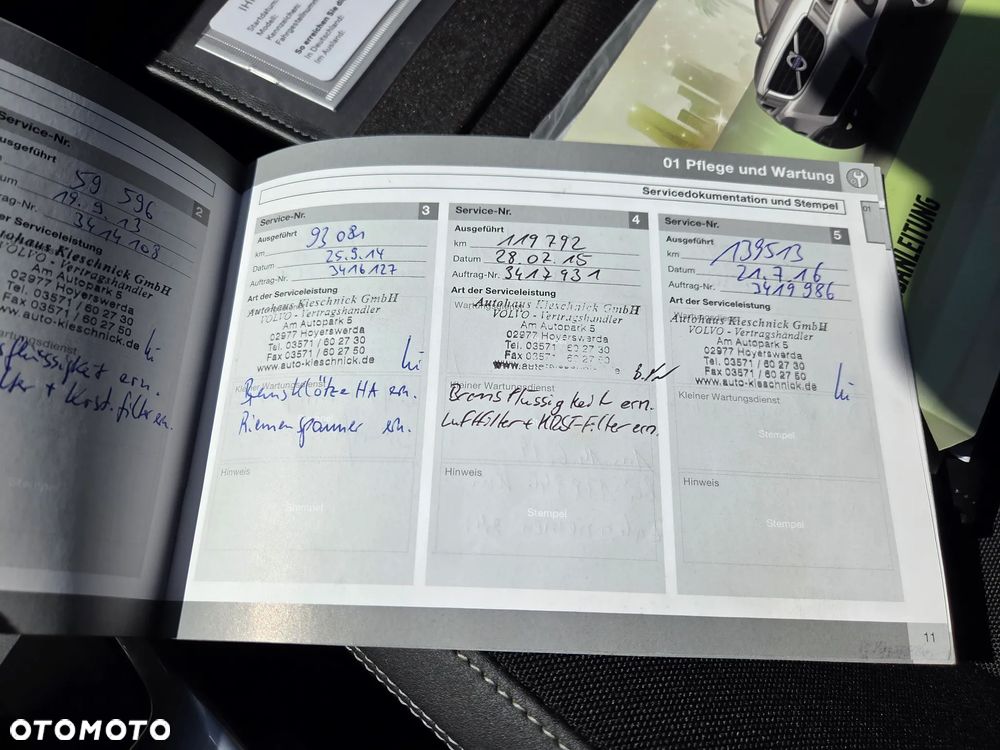 IHR
Startdatum:
Modell:
Kennzeichen:
Fahrgestellnummer
So erreichen Sie
In Deutschland:
Im Ausland:
Service-Nr.
2
Ausgeführt
59 596
19.9.13
3414108
Serviceleistung
Autohaus Kieschnick GmbH
VOLVO - Vertragshändler
Am Autopark 5
02977 Hoyerswerda
Tel. 03571 / 60 27 30
Fax 03571 / 60 27 50
www.auto-kieschnick.de
Wartungsdienst
flüssigkeit ern.
filter ern.
Stempel
01 Pflege und Wartung
Servicedokumentation und Stempel
01
Service-Nr.
3
Ausgeführt
km 93 081
Datum 25.9.14
Auftrag-Nr. 3416127
Art der Serviceleistung
Autohaus Kieschnick GmbH
VOLVO - Vertragshändler
Am Autopark 5
02977 Hoyerswerda
Tel. 03571 / 60 27 30
Fax 03571 / 60 27 50
www.auto-kieschnick.de
Kleiner Wartungsdienst
Bremsklötze HA ern.
Riemenspanner ern.
Hinweis
Stempel
Service-Nr.
4
Ausgeführt
km 119 792
Datum 28.02.15
Auftrag-Nr. 3417931
Art der Serviceleistung
Autohaus Kieschnick GmbH
VOLVO - Vertragshändler
Am Autopark 5
02977 Hoyerswerda
Tel. 03571 / 60 27 30
Fax 03571 / 60 27 50
Kleiner Wartungsdienst
Bremsflüssigkeit ern.
Luftfilter + KRST-Filter ern.
Hinweis
Stempel
Service-Nr.
5
Ausgeführt
km 139513
Datum 21.7.16
Auftrag-Nr. 3419986
Art der Serviceleistung
Autohaus Kieschnick GmbH
VOLVO - Vertragshändler
Am Autopark 5
02977 Hoyerswerda
Tel. 03571 / 60 27 30
Fax 03571 / 60 27 50
www.auto-kieschnick.de
Kleiner Wartungsdienst
Stempel
Hinweis
Stempel
11
OTOMOTO